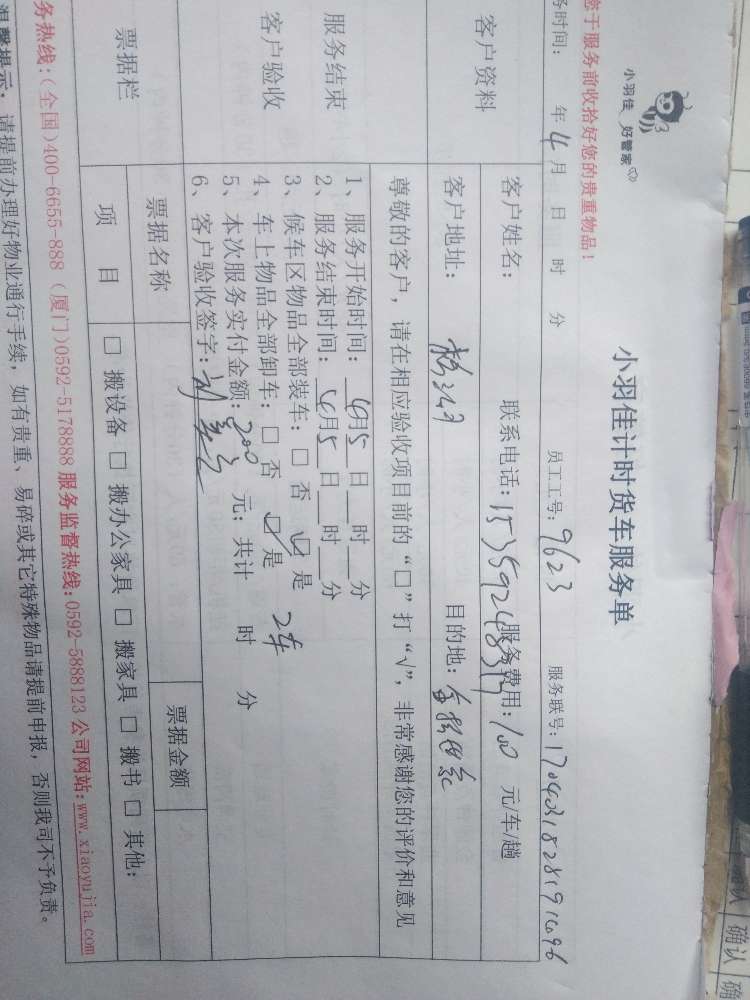 小羽佳 好管家
小羽佳计时货车服务单
您于服务前收拾好您的贵重物品!
务时间: 年4月 日 时 分 员工工号:9623 服务联号:
客户资料
客户姓名: 联系电话: 服务费用:100 元/车/趟
客户地址: 目的地:
尊敬的客户,请在相应验收项目前的“□”打“√”,非常感谢您的评价和意见
服务结束
客户验收
1、服务开始时间:4月5日 时 分
2、服务结束时间:4月5日 时 分
3、候车区物品全部装车:□ 否 ☑ 是
4、车上物品全部卸车:□ 否 ☑ 是 2车
5、本次服务实付金额:200 元;共计 时 分
6、客户验收签字:
票据栏
票据名称 票据金额
项 目 □ 搬设备 □ 搬办公家具 □ 搬家具 □ 搬书 □ 其他:
务热线:(全国)400-6655-888 (厦门)0592-5178888 服务监督热线:0592-5888123 公司网站:www.xiaoyujia.com
温馨提示:请提前办理好物业通行手续,如有贵重、易碎或其它特殊物品请提前申报,否则我司不予负责。
确认
确认
确